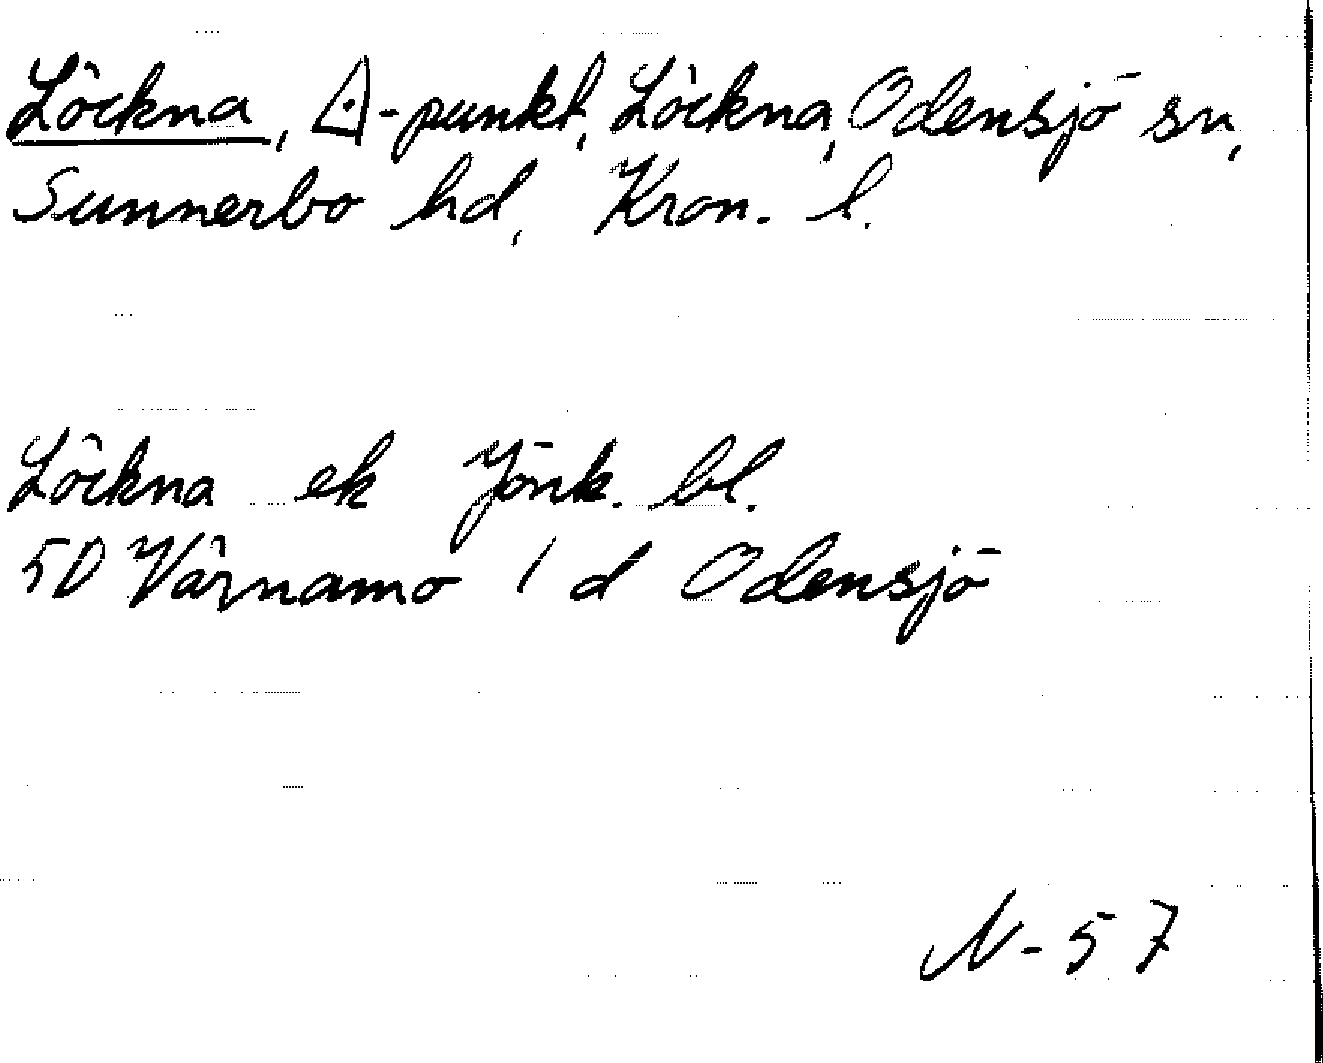 Löckna, △-punkt, Löckna, Odensjö sn,
Sunnerbo hd, Kron. l.
Löckna ek Jönk. bl.
5D Värnamo 1 d Odensjö
N-57